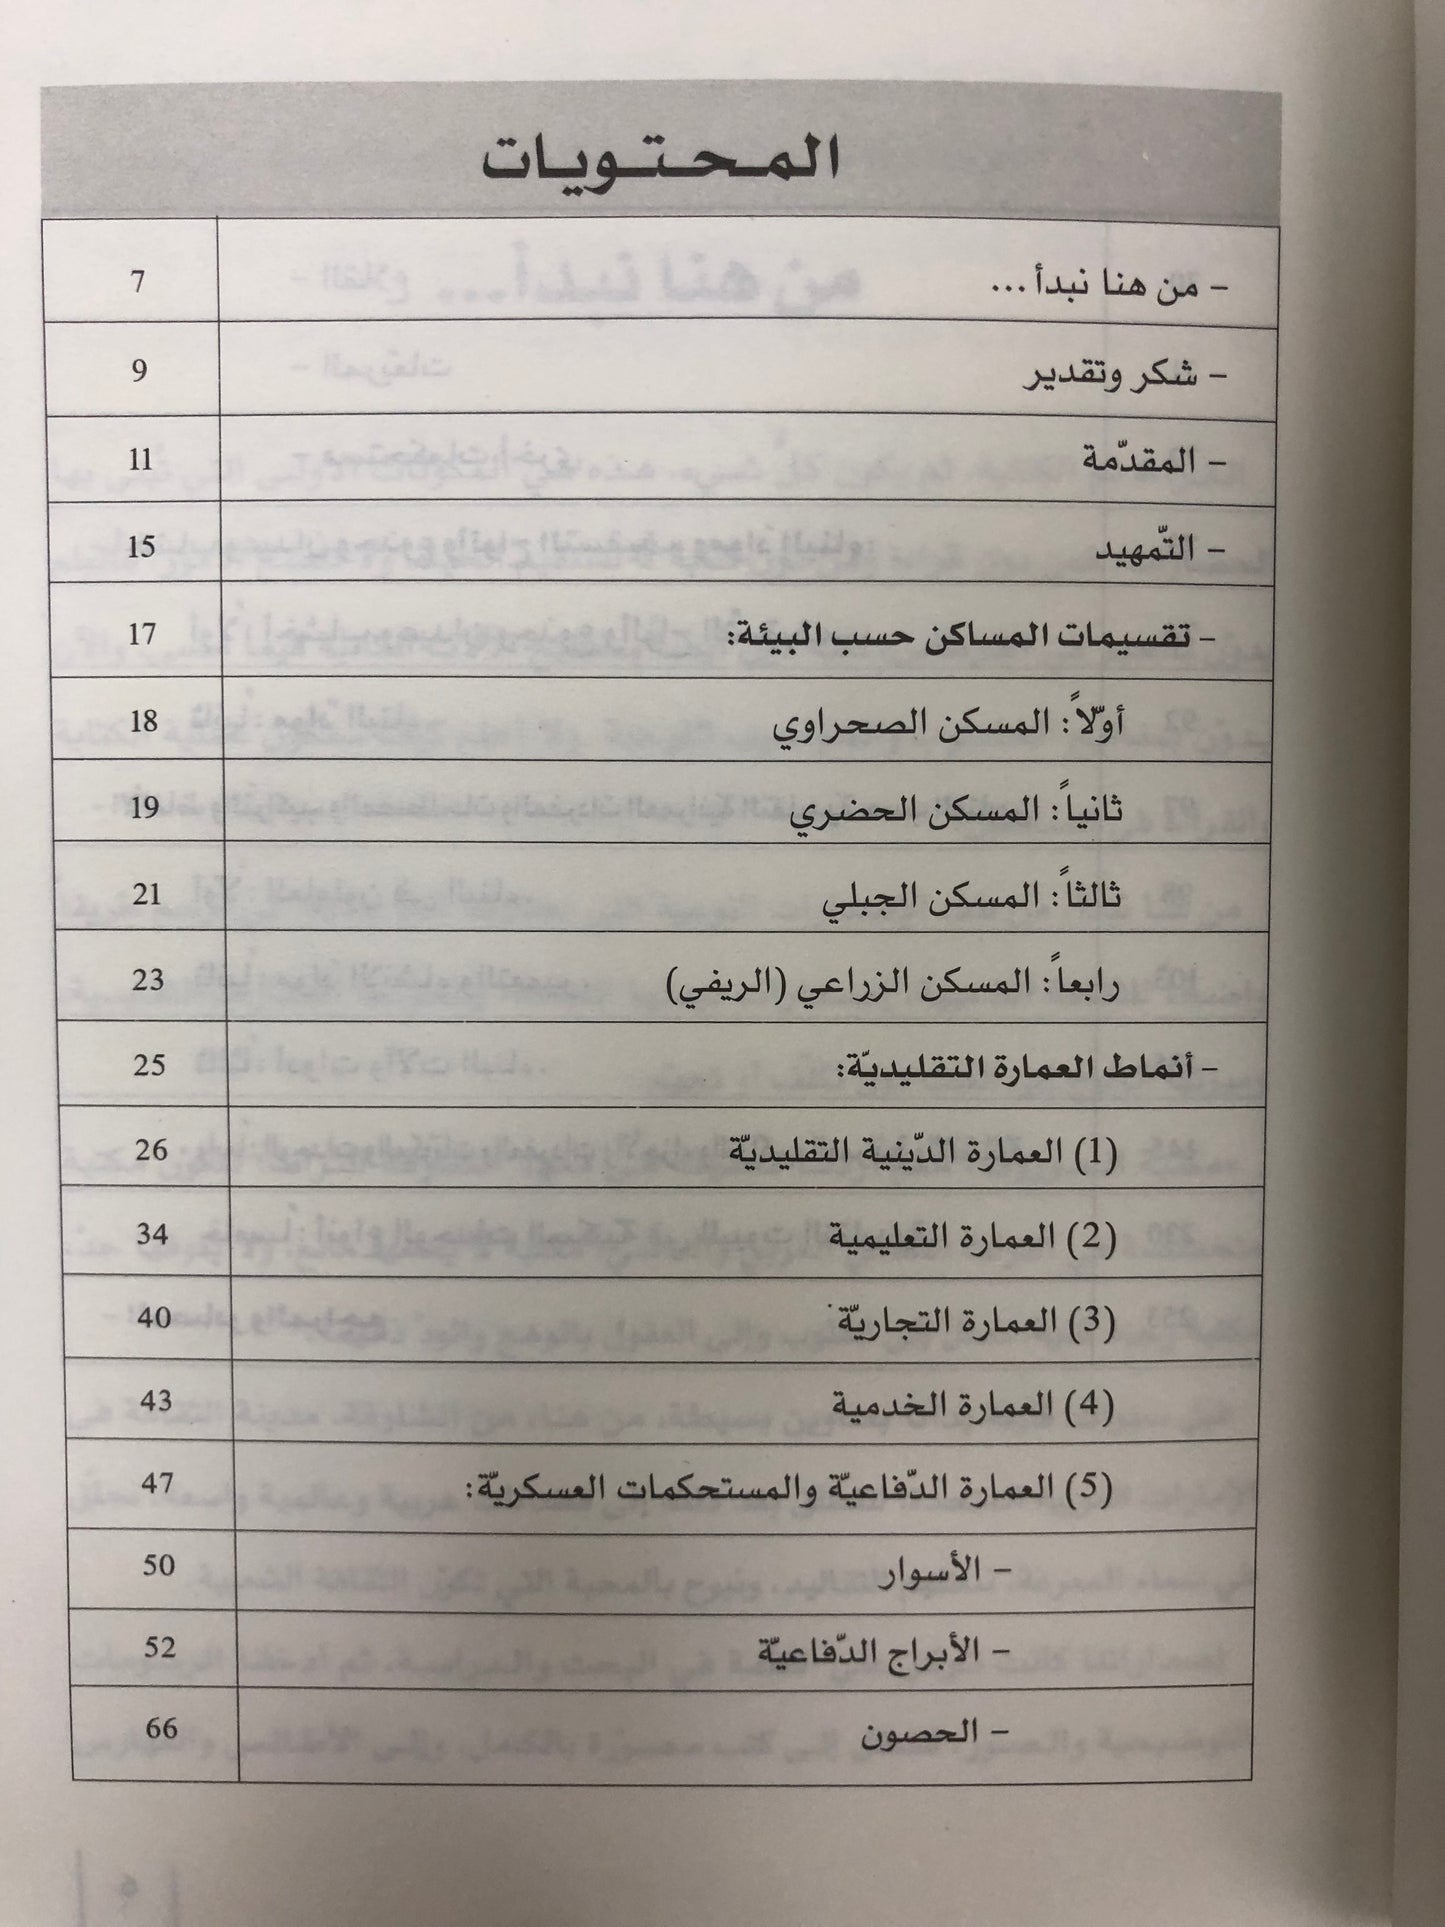 المحتويات
– من هنا نبدأ... 7
– شكر وتقدير 9
– المقدّمة 11
– التّمهيد 15
– تقسيمات المساكن حسب البيئة: 17
أوّلاً: المسكن الصحراوي 18
ثانياً: المسكن الحضري 19
ثالثاً: المسكن الجبلي 21
رابعاً: المسكن الزراعي (الريفي) 23
– أنماط العمارة التقليديّة: 25
(1) العمارة الدّينية التقليديّة 26
(2) العمارة التعليمية 34
(3) العمارة التجاريّة 40
(4) العمارة الخدمية 43
(5) العمارة الدّفاعيّة والمستحكمات العسكريّة: 47
– الأسوار 50
– الأبراج الدّفاعيّة 52
– الحصون 66